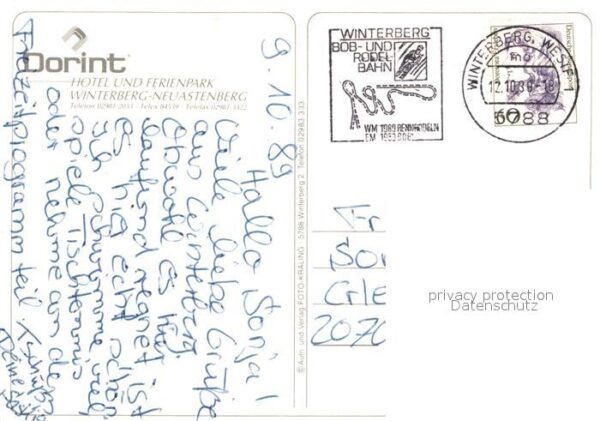 Dorint
HOTEL UND FERIENPARK
WINTERBERG-NEUASTENBERG
Telefon 02981-2033 · Telefax 02981-3322
9.10.89
Hallo Sonja!
Viele liebe Grüße
aus Winterberg.
Obwohl es hier
laufend regnet ist
es hier echt schön.
Ich schwimme viel,
spiele Tischtennis
oder nehme an de
Freizeitprogramm teil. Tschüß
© Auth. und Verlag FOTO-KRÄLING · 5788 Winterberg 2, Telefon 02983 333
WINTERBERG
BOB- UND
RODEL
BAHN
WM 1989 RENNRODELN
WINTERBERG, WESTF
12.10.89-18
5788
Deutsche
60
Fr
So
Gle
2070
privacy protection
Datenschutz